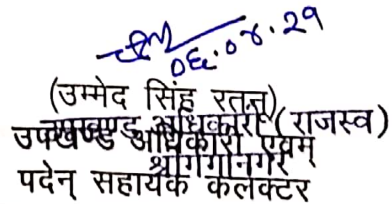 06.04.21
(उम्मेद सिंह रतनू)
उपखण्ड अधिकारी (राजस्व)
उपखण्ड अधिकारी एवम्
श्रीगंगानगर
पदेन् सहायक कलक्टर